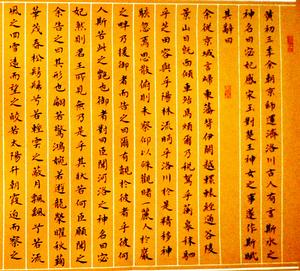 黃初三年余朝京師還濟洛川古人有言斯水之
神名曰宓妃感宋玉對楚王神女之事遂作斯賦
其辭曰
余從京域言歸東藩背伊闕越轘轅經通谷陵
景山日既西傾車殆馬煩爾乃稅駕乎蘅皋秣駟
乎芝田容與乎陽林流眄乎洛川於是精移神
駭忽焉思散俯則未察仰以殊觀睹一麗人於巖
之畔乃援御者而告之曰爾有覿於彼者乎彼何
人斯若此之艷也御者對曰臣聞河洛之神名曰宓
妃然則君王所見無乃是乎其狀若何臣願聞之
余告之曰其形也翩若驚鴻婉若遊龍榮曜秋菊
華茂春松髣髴兮若輕雲之蔽月飄颻兮若流
風之回雪遠而望之皎若太陽升朝霞迫而察之